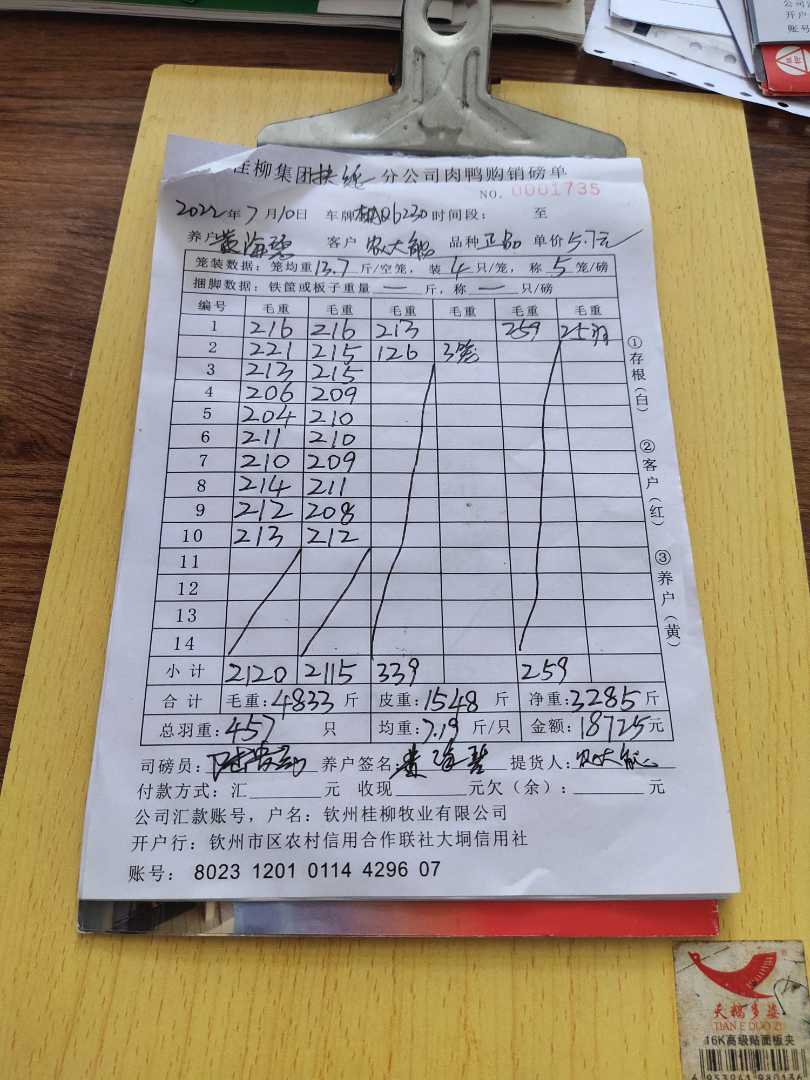 桂柳集团扶绥分公司肉鸭购销磅单
NO. 0001735
2022年7月10日 车牌 06230 时间段： 至
养户 黄海碧 客户 农大能 品种 正品 单价 5.7元
笼装数据：笼均重13.7斤/空笼，装4只/笼，称5笼/磅
捆脚数据：铁筐或板子重量—斤，称—只/磅
编号 毛重 毛重 毛重 毛重 毛重 毛重
1 216 216 213 259 25羽
2 221 215 126 3笼
3 213 215
4 206 209
5 204 210
6 211 210
7 210 209
8 214 211
9 212 208
10 213 212
11
12
13
14
小计 2120 2115 339 259
合计 毛重：4833斤 皮重：1548斤 净重：3285斤
总羽重：457只 均重：7.19斤/只 金额：18725元
司磅员： 养户签名：黄海碧 提货人：农大能
付款方式：汇 元 收现 元欠（余）： 元
公司汇款账号，户名：钦州桂柳牧业有限公司
开户行：钦州市区农村信用合作联社大垌信用社
账号： 8023 1201 0114 4296 07
①存根（白）
②客户（红）
③养户（黄）
天福多姿
TIAN E DUO ZI
16K高级贴面板夹
公司
开户
账号